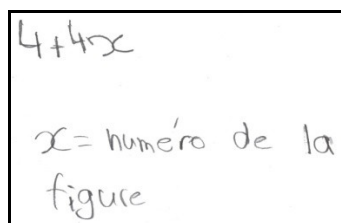 4+4x
x= numéro de la
figure